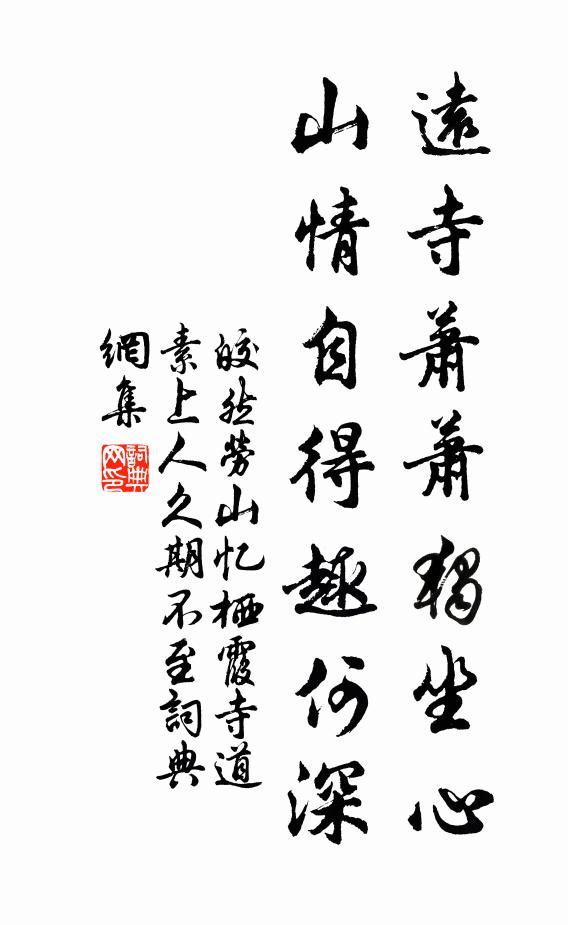 遠寺蕭蕭獨坐心
山情自得趣何深
皎然勞山忆栖霞寺道
素上人久期不至詞典
網集
詞典
网印